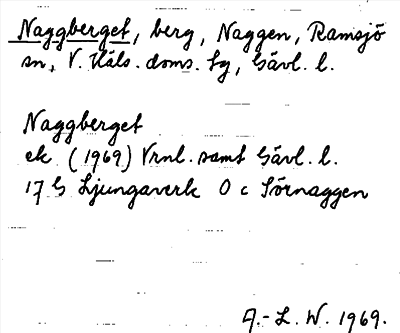 Naggberget, berg, Naggen, Ramsjö
sn, V. Häls. doms. tg, Gävl. l.
Naggberget
ek (1969) Vrnl. samt Gävl. l.
17 G Ljungaverk O c Sörnaggen
A.-L. W. 1969.